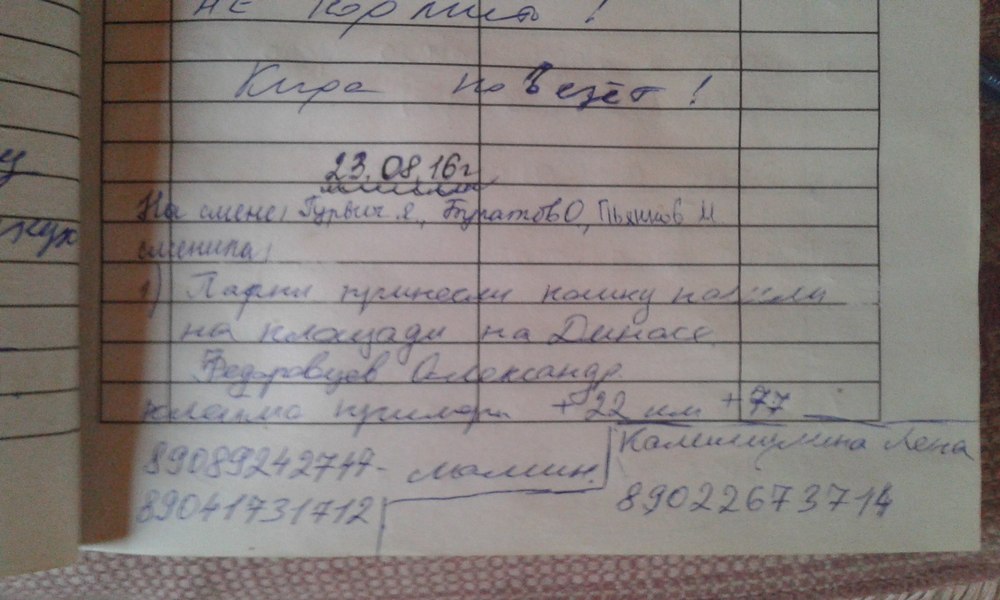 не кормить!
Кира повезёт!
23.08.16г
На смене: Гурвич Я., Булатов О, Пьянков М
сменила:
1) Парни принесли кошку нашли
на площади на Динасе
Федоровцев Александр
+22 км +77
89089242744- мамин.
Калимулина Лена
89041731712
89022673714